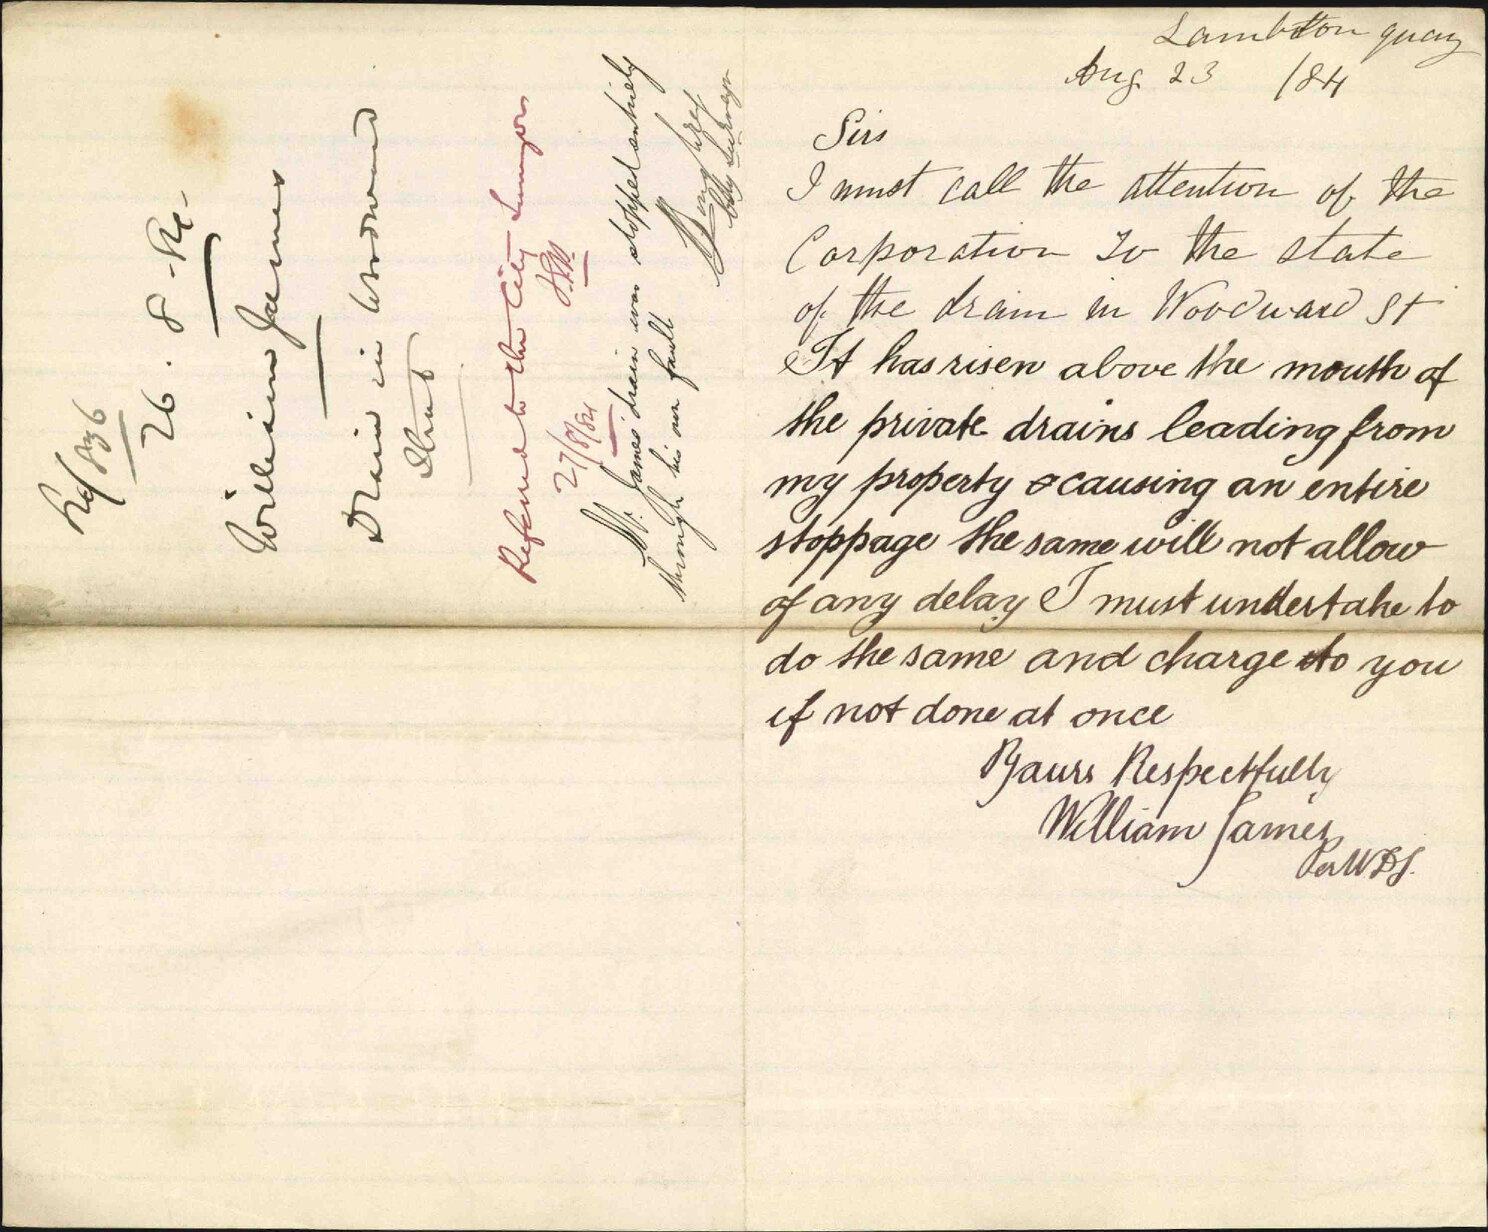 Lambton quay
Aug 23 /84
Sirs
I must call the attention of the
Corporation to the state
of the drain in Woodward St
It has risen above the mouth of
the private drains leading from
my property & causing an entire
stoppage the same will not allow
of any delay I must undertake to
do the same and charge to you
if not done at once
Yours Respectfully
William James
Per WDJ.
26.8.84
William James
Drain in Woodward
Street
Referred to the City Surveyor
27/8/84
Mr. James' drain was stopped entirely
through his own fault
City Surveyor